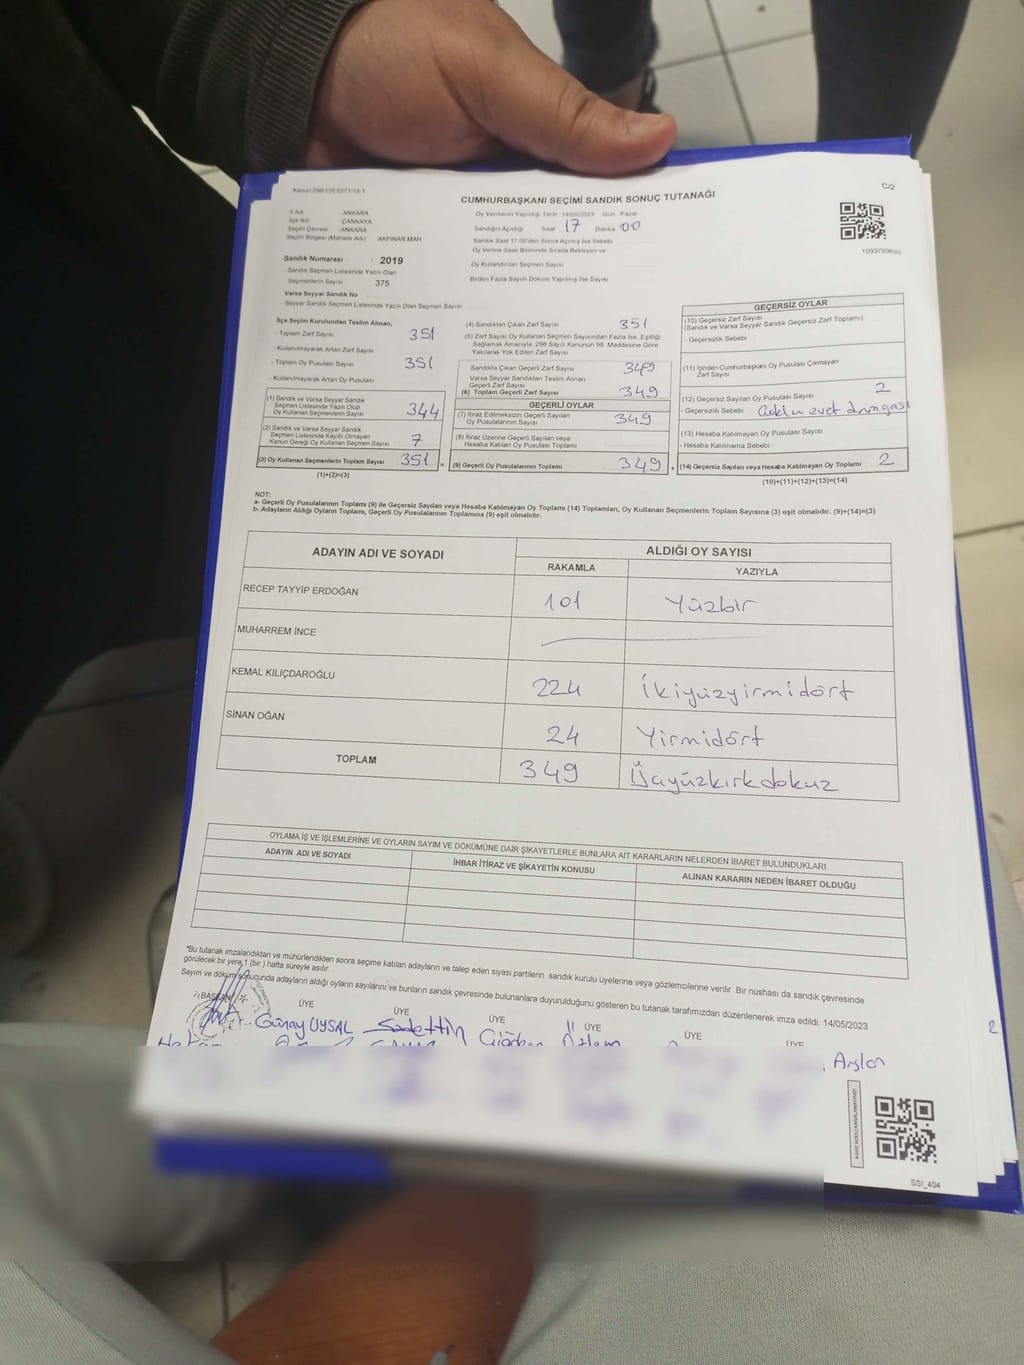 Kanun:298/105,6271/18-1
C/2
CUMHURBAŞKANI SEÇİMİ SANDIK SONUÇ TUTANAĞI
İl Adı : ANKARA
İlçe Adı : ÇANKAYA
Seçim Çevresi : ANKARA
Seçim Bölgesi (Mahalle Adı) : AKPINAR MAH
Sandık Numarası : 2019
- Sandık Seçmen Listesinde Yazılı Olan
Seçmenlerin Sayısı : 375
Varsa Seyyar Sandık No
- Seyyar Sandık Seçmen Listesinde Yazılı Olan Seçmen Sayısı
Oy Vermenin Yapıldığı Tarih : 14/05/2023 Gün : Pazar
Sandığın Açıldığı Saat 17 Dakika 00
Sandık Saat 17:00'den Sonra Açılmış İse Sebebi
Oy Verme Saati Bitiminde Sırada Bekleyen ve
Oy Kullandırılan Seçmen Sayısı
Birden Fazla Sayım Döküm Yapılmış İse Sayısı
1093769693
İlçe Seçim Kurulundan Teslim Alınan;
- Toplam Zarf Sayısı 351
- Kullanılmayarak Artan Zarf Sayısı
- Toplam Oy Pusulası Sayısı 351
- Kullanılmayarak Artan Oy Pusulası
(1) Sandık ve Varsa Seyyar Sandık
Seçmen Listesinde Yazılı Olup
Oy Kullanan Seçmenlerin Sayısı 344
(2) Sandık ve Varsa Seyyar Sandık
Seçmen Listesinde Kayıtlı Olmayan
Kanun Gereği Oy Kullanan Seçmen Sayısı 7
(3) Oy Kullanan Seçmenlerin Toplam Sayısı 351 =
(1)+(2)=(3)
(4) Sandıktan Çıkan Zarf Sayısı 351
(5) Zarf Sayısı Oy Kullanan Seçmen Sayısından Fazla İse, Eşitliği
Sağlamak Amacıyla; 298 Sayılı Kanunun 98. Maddesine Göre
Yakılarak Yok Edilen Zarf Sayısı
Sandıkta Çıkan Geçerli Zarf Sayısı 349
Varsa Seyyar Sandıktan Teslim Alınan
Geçerli Zarf Sayısı
(6) Toplam Geçerli Zarf Sayısı 349
GEÇERLİ OYLAR
(7) İtiraz Edilmeksizin Geçerli Sayılan
Oy Pusulasının Sayısı 349
(8) İtiraz Üzerine Geçerli Sayılan veya
Hesaba Katılan Oy Pusulası Toplamı
(9) Geçerli Oy Pusulalarının Toplamı 349 +
GEÇERSİZ OYLAR
(10) Geçersiz Zarf Sayısı
(Sandık ve Varsa Seyyar Sandık Geçersiz Zarf Toplamı)
- Geçersizlik Sebebi
(11) İçinden Cumhurbaşkanı Oy Pusulası Çıkmayan
Zarf Sayısı
(12) Geçersiz Sayılan Oy Pusulası Sayısı 2
- Geçersizlik Sebebi evet damgası
(13) Hesaba Katılmayan Oy Pusulası Sayısı
- Hesaba Katılmama Sebebi
(14) Geçersiz Sayılan veya Hesaba Katılmayan Oy Toplamı 2
(10)+(11)+(12)+(13)=(14)
NOT:
a- Geçerli Oy Pusulasının Toplamı (9) ile Geçersiz Sayılan veya Hesaba Katılmayan Oy Toplamı (14) Toplamları, Oy Kullanan Seçmenlerin Toplam Sayısına (3) eşit olmalıdır. (9)+(14)=(3)
b- Adayların Aldığı Oyların Toplamı, Geçerli Oy Pusulalarının Toplamına (9) eşit olmalıdır.
ADAYIN ADI VE SOYADI
ALDIĞI OY SAYISI
RAKAMLA YAZIYLA
RECEP TAYYİP ERDOĞAN 101 Yüzbir
MUHARREM İNCE
KEMAL KILIÇDAROĞLU 224 İkiyüzyirmidört
SİNAN OĞAN 24 Yirmidört
TOPLAM 349 Üçyüzkırkdokuz
OYLAMA İŞ VE İŞLEMLERİNE VE OYLARIN SAYIM VE DÖKÜMÜNE DAİR ŞİKAYETLERLE BUNLARA AİT KARARLARIN NELERDEN İBARET BULUNDUKLARI
ADAYIN ADI VE SOYADI İHBAR İTİRAZ VE ŞİKAYETİN KONUSU ALINAN KARARIN NEDEN İBARET OLDUĞU
*Bu tutanak imzalandıktan ve mühürlendikten sonra seçime katılan adayların ve talep eden siyasi partilerin sandık kurulu üyelerine veya gözlemcilerine verilir. Bir nüshası da sandık çevresinde
görülecek bir yere 1 (bir ) hafta süreyle asılır.
Sayım ve döküm sonucunda adayların aldığı oyların sayılarını ve bunların sandık çevresinde bulunanlara duyurulduğunu gösteren bu tutanak tarafımızdan düzenlenerek imza edildi. 14/05/2023
BAŞKAN ÜYE ÜYE ÜYE ÜYE ÜYE ÜYE
Günay UYSAL Sadettin Özlem
Arslan
2
SSI_404